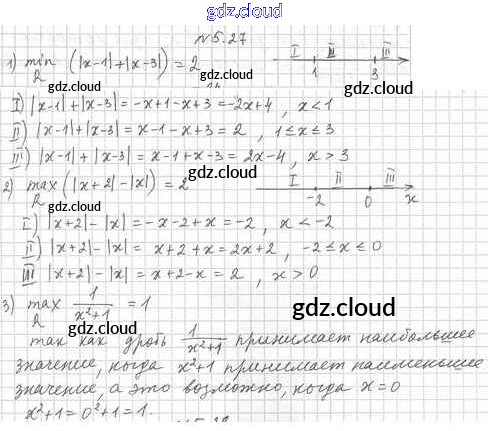 gdz.cloud
№5.27
1) min (|x-1|+|x-3|) = 2
R
I II III
1 3
gdz.cloud gdz.cloud
I) |x-1|+|x-3| = -x+1-x+3 = -2x+4 , x<1
II) |x-1|+|x-3| = x-1-x+3 = 2 , 1≤x≤3
III) |x-1|+|x-3| = x-1+x-3 = 2x-4 , x>3
gdz.cloud
2) max (|x+2|-|x|) = 2
R
I II III
-2 0 x
gdz.cloud gdz.cloud
I) |x+2|-|x| = -x-2+x = -2 , x<-2
II) |x+2|-|x| = x+2+x = 2x+2 , -2≤x≤0
III |x+2|-|x| = x+2-x = 2 , x>0
gdz.cloud
3) max 1/(x²+1) = 1
R
gdz.cloud
так как дробь 1/(x²+1) принимает наибольшее
значение, когда x²+1 принимает наименьшее
значение, а это возможно, когда x=0
gdz.cloud gdz.cloud
x²+1=0²+1=1.